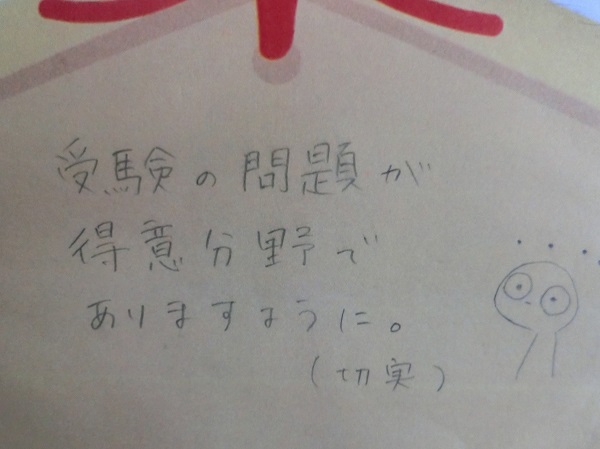 受験の問題が
得意分野で
ありますように。
(切実)